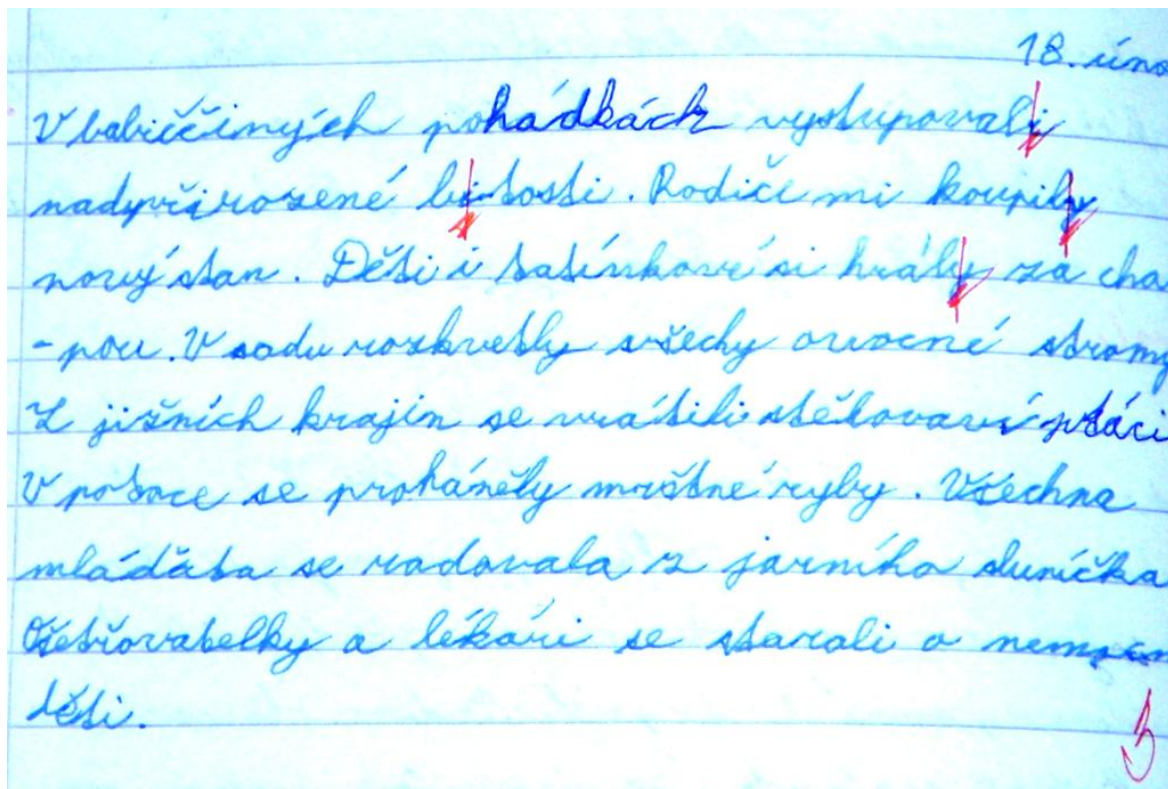 18. úno
V babiččiných pohádkách vystupovali
nadpřirozené bitosti. Rodiče mi koupily
nový stan. Děti i tatínkové si hrály za cha
-pou. V sadu rozkvetly všechy ovocné stromy
Z jižních krajin se vrátili stěhovaví ptáci
V potoce se proháněly mrštné ryby. Všechna
mláďata se radovala z jarního sluníčka
Ošetřovatelky a lékaři se starali o
děti.
3